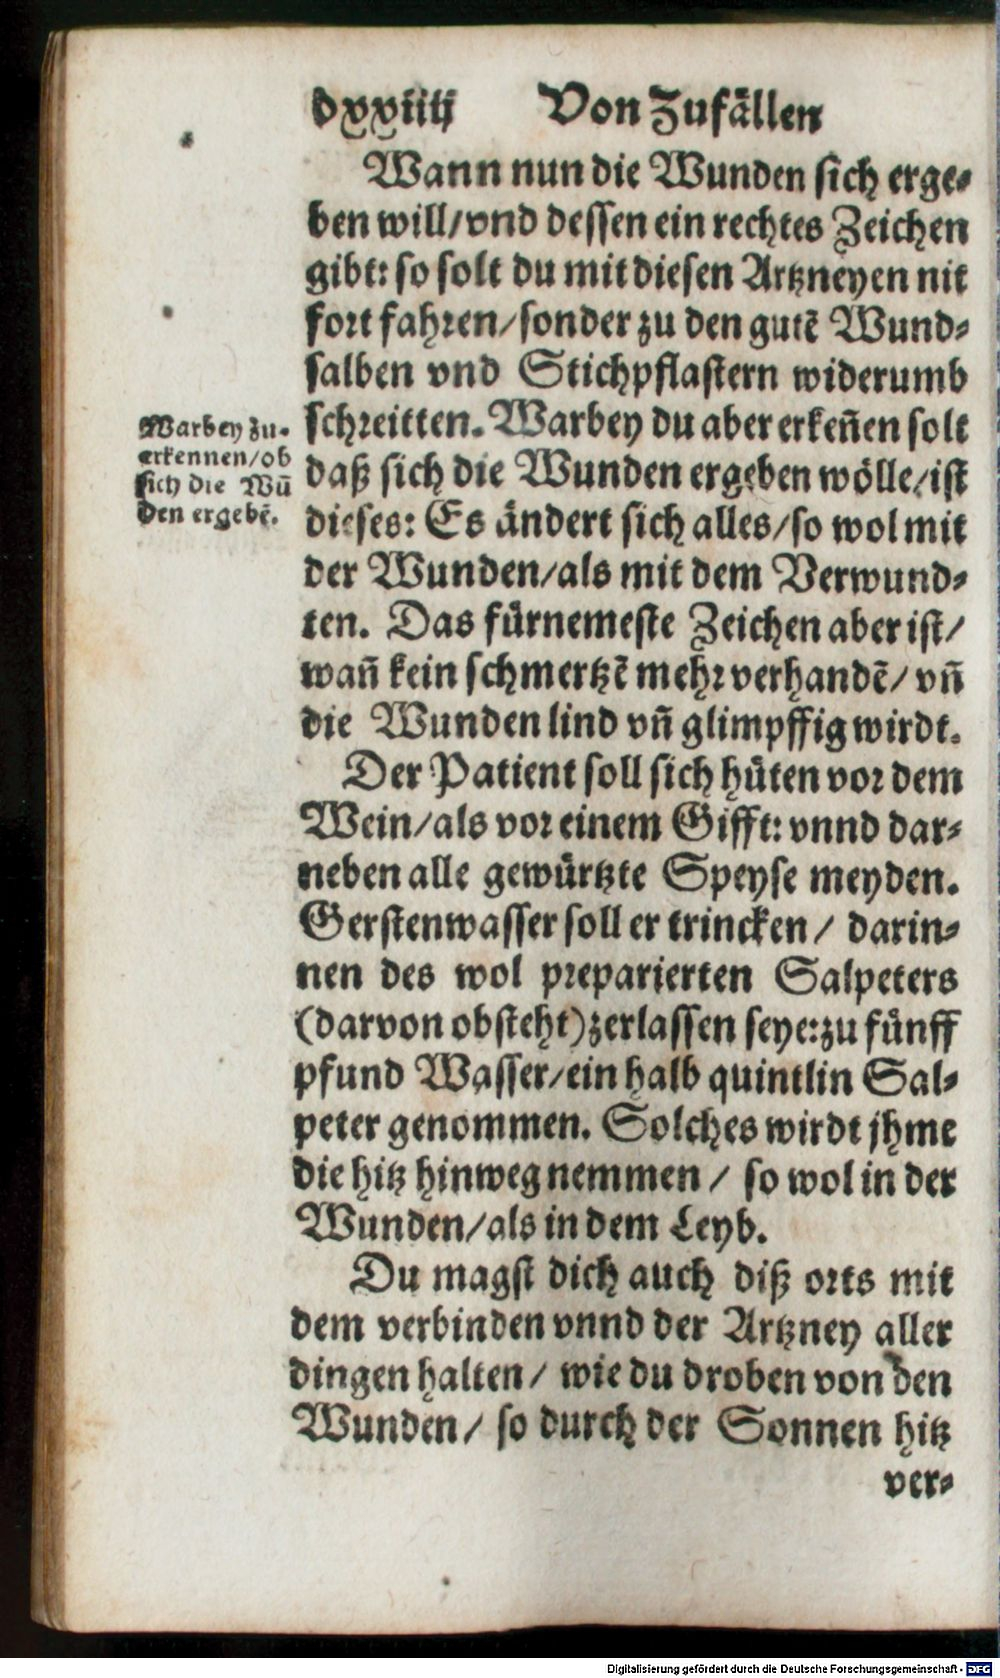 dxxiiij Von Zufällen
Wann nun die Wunden sich erge-
ben will/vnd dessen ein rechtes Zeichen
gibt: so solt du mit diesen Artzneyen nit
fort fahren/sonder zu den gutẽ Wund-
salben vnd Stichpflastern widerumb
schreitten. Warbey du aber erkeñen solt
daß sich die Wunden ergeben wölle/ist
dieses: Es ändert sich alles/so wol mit
der Wunden/als mit dem Verwund-
ten. Das fürnemeste Zeichen aber ist/
wañ kein schmertzẽ mehr verhandẽ/vñ
die Wunden lind vñ glimpffig wirdt.
Warbey zu-
erkennen/ob
sich die Wũ
den ergebẽ.
Der Patient soll sich hüten vor dem
Wein/als vor einem Gifft: vnnd dar-
neben alle gewürtzte Speyse meyden.
Gerstenwasser soll er trincken/ darin-
nen des wol preparierten Salpeters
(darvon obsteht) zerlassen seye: zu fünff
pfund Wasser/ein halb quintlin Sal-
peter genommen. Solches wirdt jhme
die hitz hinweg nemmen/ so wol in der
Wunden/als in dem Leyb.
Du magst dich auch diß orts mit
dem verbinden vnnd der Artzney aller
dingen halten/ wie du droben von den
Wunden/ so durch der Sonnen hitz
ver-
Digitalisierung gefördert durch die Deutsche Forschungsgemeinschaft - DFG